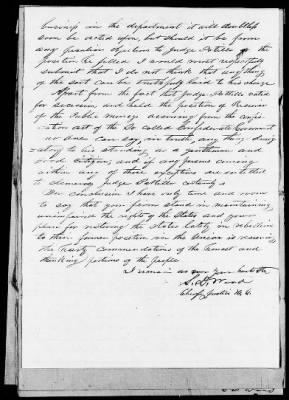 business in the department it will doubtless
soon be acted upon, but should it be from
any peculiar objections to Judge Pattillo
position he filled I would most respectfully
submit that I do not think that any thing
of the sort can be truthfully laid to his charge
Apart from the fact that Judge Pattillo voted
for secession and held the position of Receiver
of the Public moneys accruing from the
act of the So Called Confederate Government
no one can say, in truth, any thing
to his standing as a gentleman and
Good Citizen, and if any persons coming
within any of these exceptions are entitled
to clemency Judge Pattillo certainly is
In conclusion I have only time and room
to say that your firm stand in maintaining
unimpaired the rights of the States and your
plan for restoring the States lately in rebellion
to their former position in the Union is receiving
the hearty commendations of the honest and
thinking portions of the people
I remain as ever your
Wood
Chief Justice